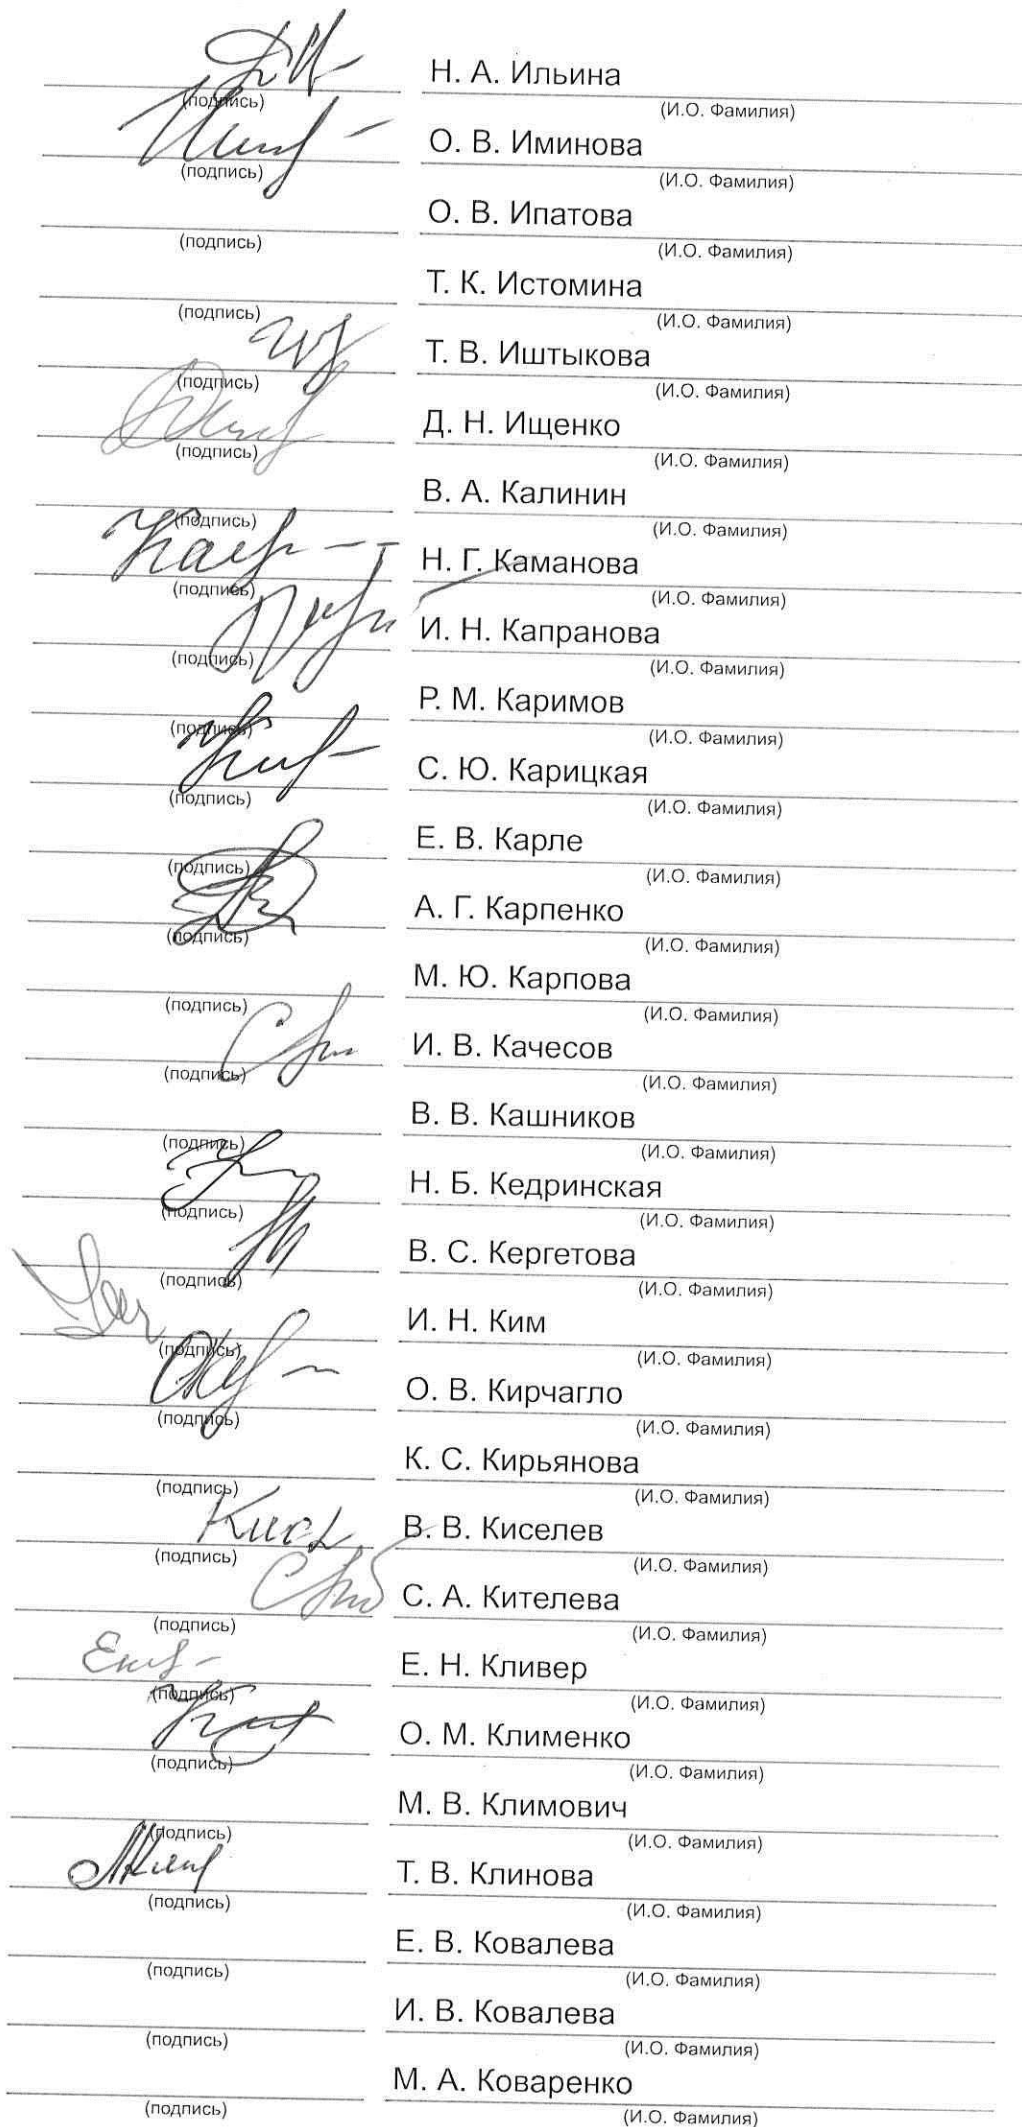 Н. А. Ильина
(подпись) (И.О. Фамилия)
О. В. Иминова
(подпись) (И.О. Фамилия)
О. В. Ипатова
(подпись) (И.О. Фамилия)
Т. К. Истомина
(подпись) (И.О. Фамилия)
Т. В. Иштыкова
(подпись) (И.О. Фамилия)
Д. Н. Ищенко
(подпись) (И.О. Фамилия)
В. А. Калинин
(подпись) (И.О. Фамилия)
Н. Г. Каманова
(подпись) (И.О. Фамилия)
И. Н. Капранова
(подпись) (И.О. Фамилия)
Р. М. Каримов
(подпись) (И.О. Фамилия)
С. Ю. Карицкая
(подпись) (И.О. Фамилия)
Е. В. Карле
(подпись) (И.О. Фамилия)
А. Г. Карпенко
(подпись) (И.О. Фамилия)
М. Ю. Карпова
(подпись) (И.О. Фамилия)
И. В. Качесов
(подпись) (И.О. Фамилия)
В. В. Кашников
(подпись) (И.О. Фамилия)
Н. Б. Кедринская
(подпись) (И.О. Фамилия)
В. С. Кергетова
(подпись) (И.О. Фамилия)
И. Н. Ким
(подпись) (И.О. Фамилия)
О. В. Кирчагло
(подпись) (И.О. Фамилия)
К. С. Кирьянова
(подпись) (И.О. Фамилия)
В. В. Киселев
(подпись) (И.О. Фамилия)
С. А. Кителева
(подпись) (И.О. Фамилия)
Е. Н. Кливер
(подпись) (И.О. Фамилия)
О. М. Клименко
(подпись) (И.О. Фамилия)
М. В. Климович
(подпись) (И.О. Фамилия)
Т. В. Клинова
(подпись) (И.О. Фамилия)
Е. В. Ковалева
(подпись) (И.О. Фамилия)
И. В. Ковалева
(подпись) (И.О. Фамилия)
М. А. Коваренко
(подпись) (И.О. Фамилия)